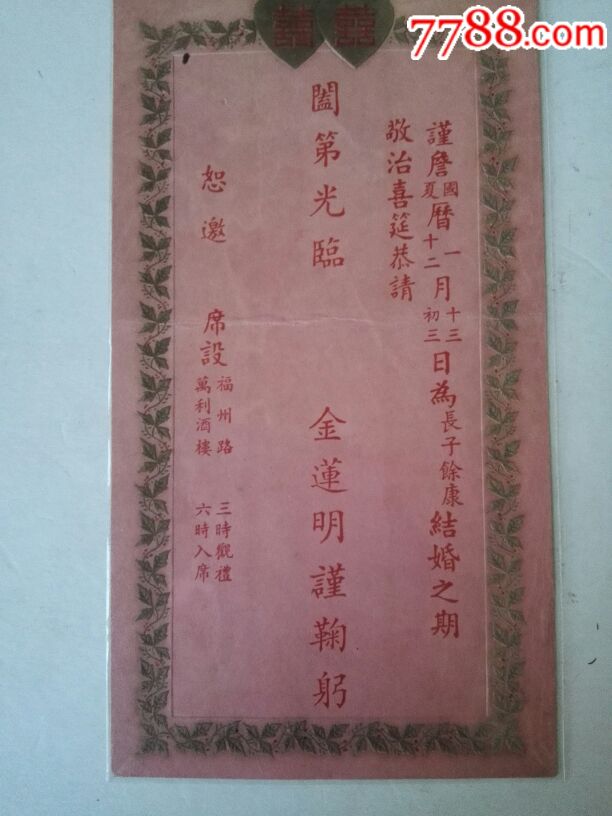 7788.com
囍 囍
謹詹國夏曆一十二月十三初三日為長子餘康結婚之期
敬治喜筵恭請
闔第光臨
金蓮明謹鞠躬
恕邀
席設福州路萬利酒樓
三時觀禮
六時入席